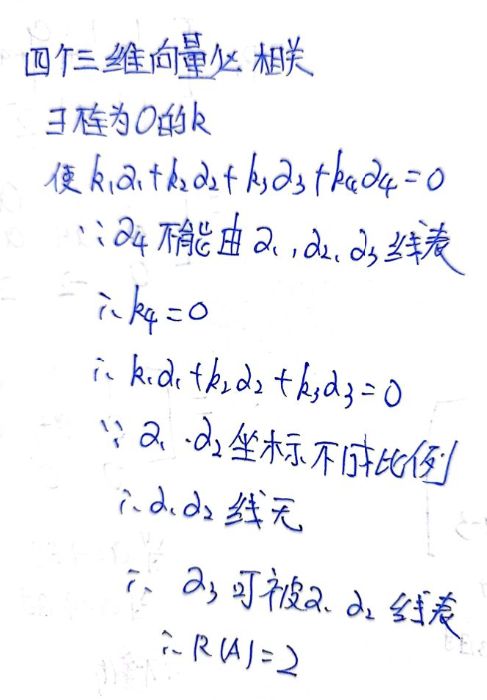 四个三维向量必相关
∃不全为0的k
使k₁α₁+k₂α₂+k₃α₃+k₄α₄=0
∵α₄不能由α₁,α₂、α₃线表
∴k₄=0
∴k₁α₁+k₂α₂+k₃α₃=0
∵α₁、α₂坐标不成比例
∴α₁α₂线无
∴α₃可被α₁、α₂线表
∴R(A)=2